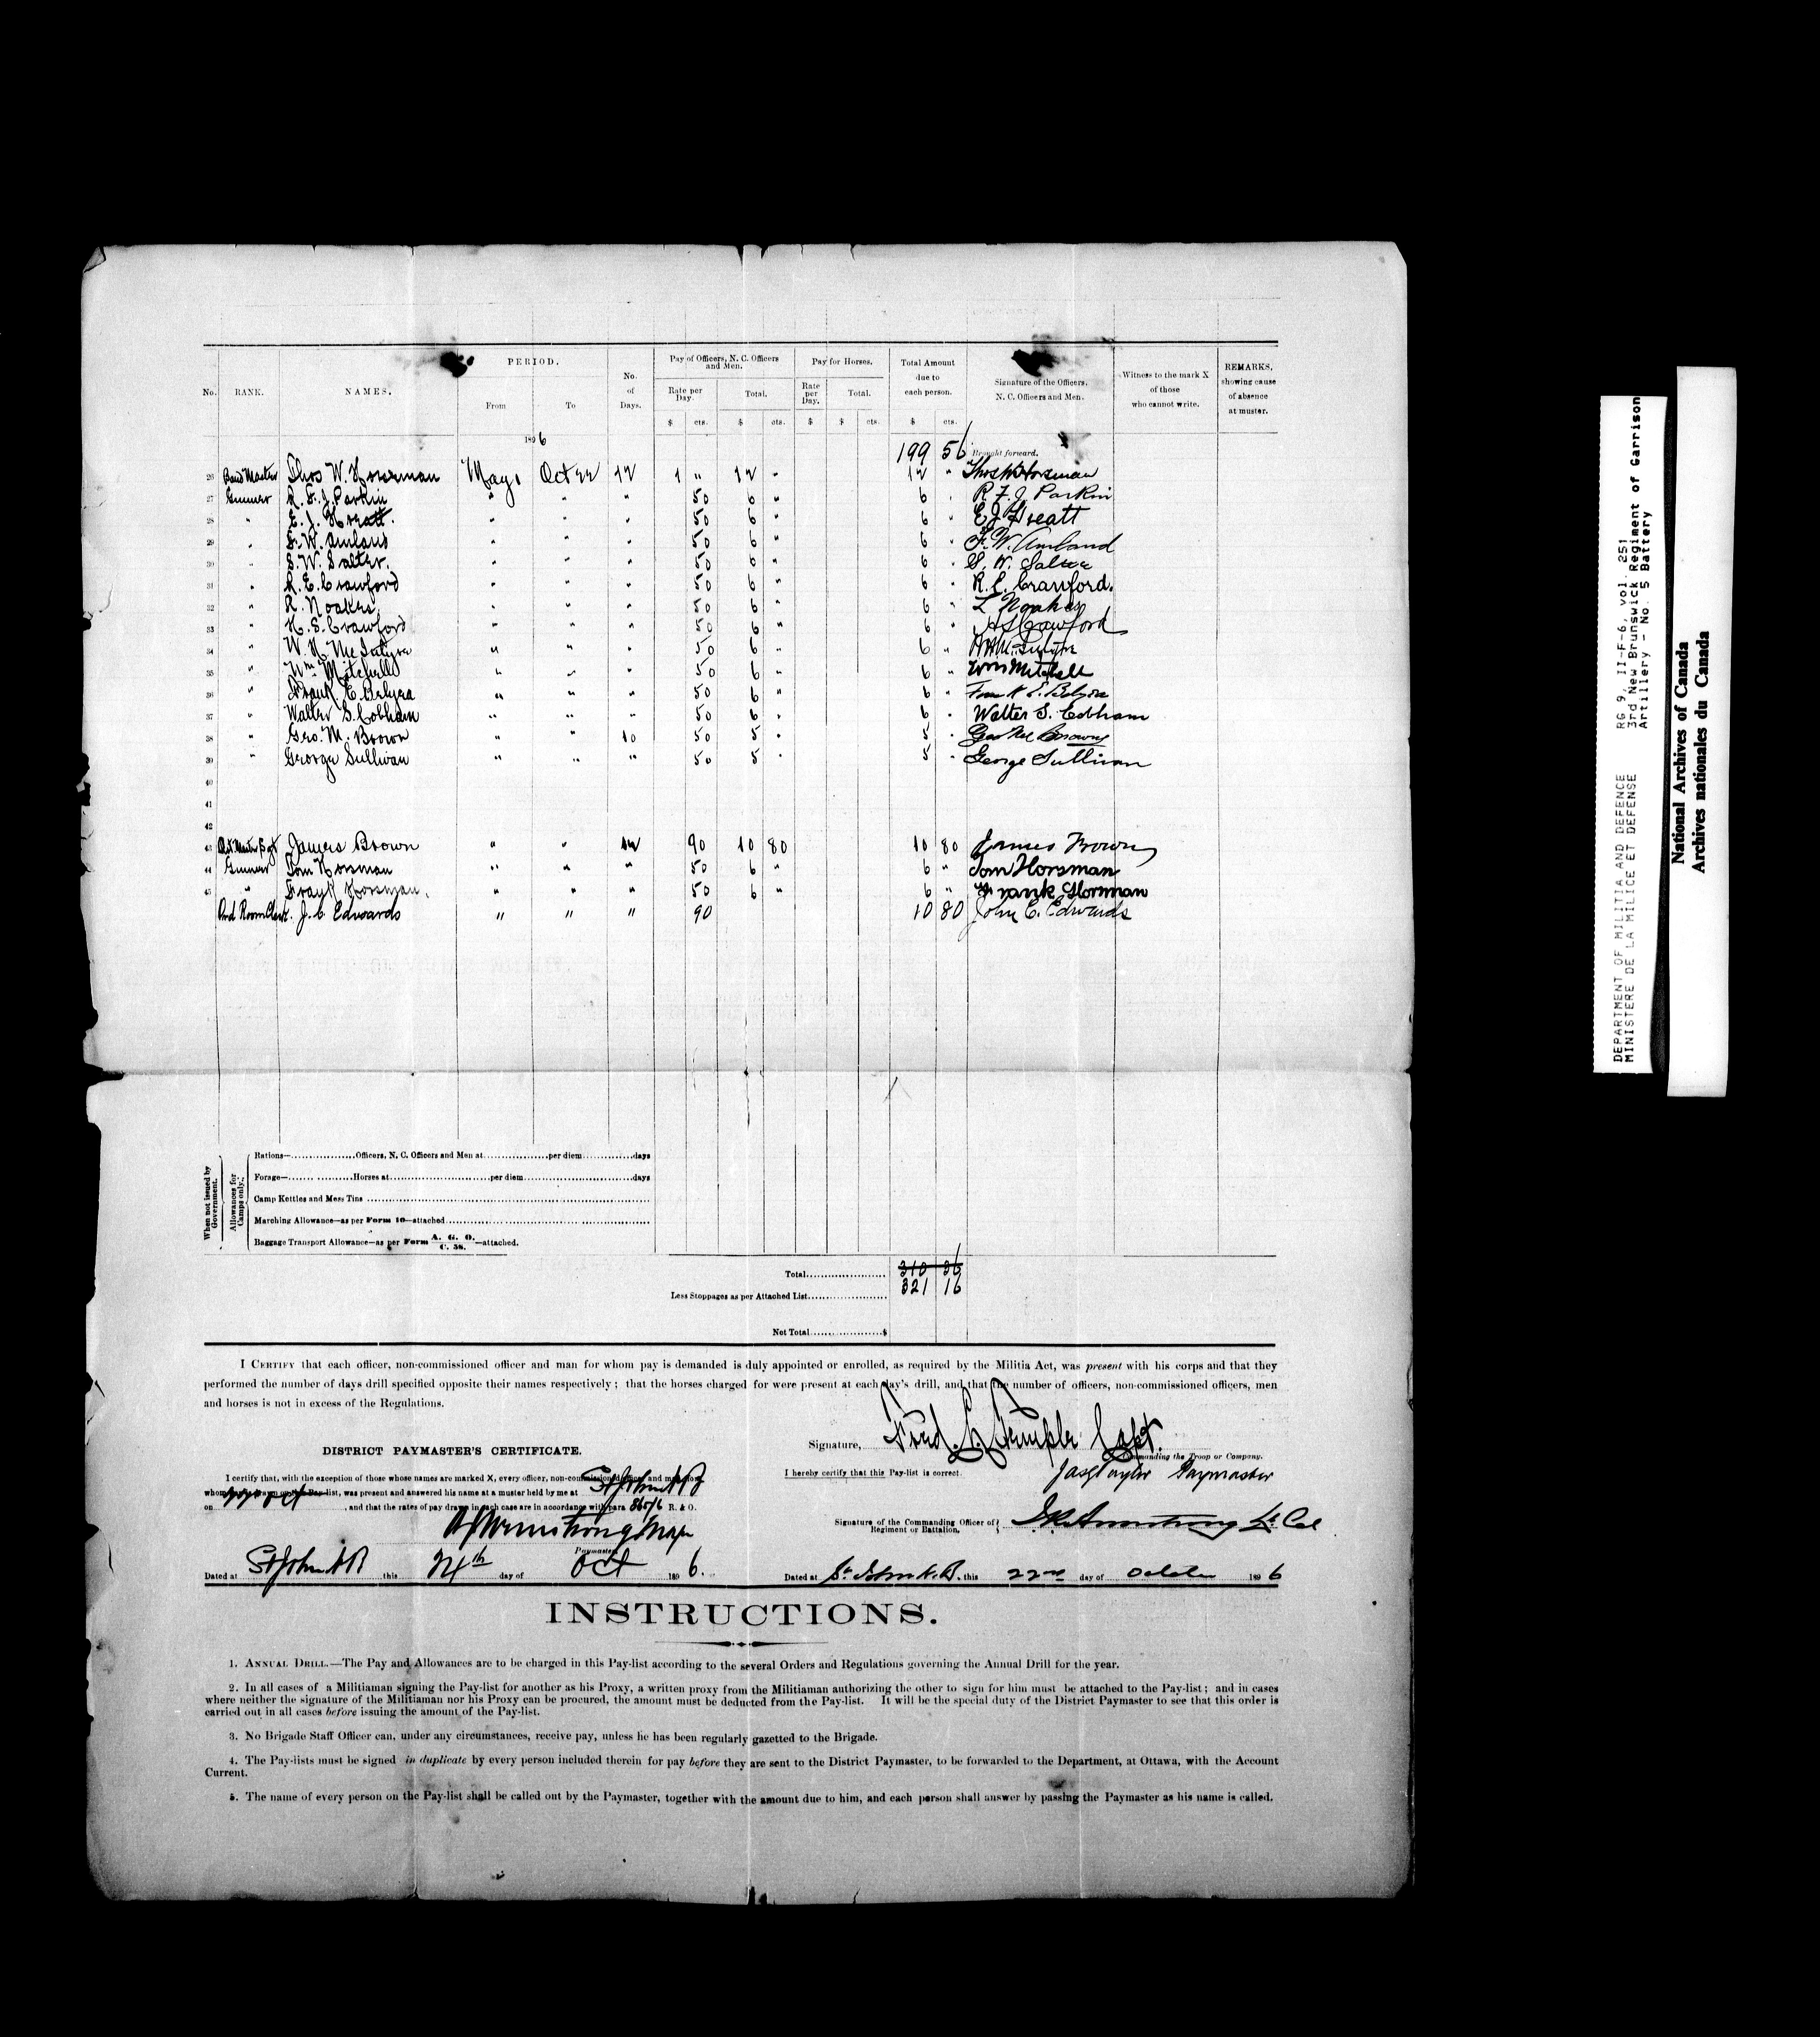 No. RANK. NAMES. PERIOD. From To No. of Days. Pay of Officers, N. C. Officers and Men. Rate per Day. $ cts. Total. $ cts. Pay for Horses. Rate per Day. $ Total. $ cts. Total Amount due to each person. $ cts. Signature of the Officers, N. C. Officers and Men. Witness to the mark X of those who cannot write. REMARKS, showing cause of absence at muster.
1896
199 56 Brought forward.
26 Band Master Thos W. Horsman May 1 Oct 22 12 1 " 12 " 12 " Thos W Horsman
27 Gunner R. F. J. Parkin " " " 50 6 " 6 " R. F. J. Parkin
28 " E. J. " " " 50 6 " 6 " E J
29 " F. W. " " " 50 6 " 6 " F. W.
30 " S. W. Salter. " " " 50 6 " 6 " S. W. Salter
31 " R. E. Crawford " " " 50 6 " 6 " R. E. Crawford.
32 " Noakes " " " 50 6 " 6 " Noakes
33 " H. S. Crawford " " " 50 6 " 6 " H S Crawford
34 " W. H. McIntyre " " " 50 6 " 6 " McIntyre
35 " Wm Mitchell " " " 50 6 " 6 " Wm Mitchell
36 " Frank E Belyea " " " 50 6 " 6 " Frank E Belyea
37 " Walter S. Cobham " " " 50 6 " 6 " Walter S. Cobham
38 " Geo. M. Brown " " 10 50 5 " 5 " Geo M Brown
39 " George Sullivan " " " 50 5 " 5 " George Sullivan
40
41
42
43 Qr Master Sgt James Brown " " 12 90 10 80 10 80 James Brown
44 Gunner Tom Horsman " " " 50 6 " 6 " Tom Horsman
45 " Frank Horsman. " " " 50 6 " 6 " Frank Horsman
Ord Room Clerk. J. C. Edwards " " " 90 10 80 John C. Edwards
When not issued by Government.
Allowances for Camps only.
Rations—..................Officers, N. C. Officers and Men at..................per diem............days
Forage—..................Horses at..................per diem..................days
Camp Kettles and Mess Tins
Marching Allowance—as per Form 10—attached
Baggage Transport Allowance—as per Form A. G. O. C. 38.—attached.
Total.................... 310 36
321 16
Less Stoppages as per Attached List....................
Net Total....................$
I CERTIFY that each officer, non-commissioned officer and man for whom pay is demanded is duly appointed or enrolled, as required by the Militia Act, was present with his corps and that they
performed the number of days drill specified opposite their names respectively; that the horses charged for were present at each day's drill, and that the number of officers, non-commissioned officers, men
and horses is not in excess of the Regulations.
Signature, Fred. Temple Capt.
Commanding the Troop or Company.
DISTRICT PAYMASTER'S CERTIFICATE.
I hereby certify that this Pay-list is correct. Jas Taylor Paymaster
I certify that, with the exception of those whose names are marked X, every officer, non-commissioned officer, and man for
whom pay is drawn on this Pay-list, was present and answered his name at a muster held by me at St John NB
on 22 Oct, and that the rates of pay drawn in each case are in accordance with para R. & O.
Armstrong Major
Paymaster
Signature of the Commanding Officer of Regiment or Battalion. Armstrong Lt Col
Dated at St John NB this 24th day of Oct 1896.
Dated at St. John N. B. this 22nd day of October 1896
INSTRUCTIONS.
1. ANNUAL DRILL.—The Pay and Allowances are to be charged in this Pay-list according to the several Orders and Regulations governing the Annual Drill for the year.
2. In all cases of a Militiaman signing the Pay-list for another as his Proxy, a written proxy from the Militiaman authorizing the other to sign for him must be attached to the Pay-list; and in cases
where neither the signature of the Militiaman nor his Proxy can be procured, the amount must be deducted from the Pay-list. It will be the special duty of the District Paymaster to see that this order is
carried out in all cases before issuing the amount of the Pay-list.
3. No Brigade Staff Officer can, under any circumstances, receive pay, unless he has been regularly gazetted to the Brigade.
4. The Pay-lists must be signed in duplicate by every person included therein for pay before they are sent to the District Paymaster, to be forwarded to the Department, at Ottawa, with the Account
Current.
5. The name of every person on the Pay-list shall be called out by the Paymaster, together with the amount due to him, and each person shall answer by passing the Paymaster as his name is called.
DEPARTMENT OF MILITIA AND DEFENCE RG 9, II-F-6, vol. 251
MINISTERE DE LA MILICE ET DEFENSE 3rd New Brunswick Regiment of Garrison
Artillery - No. 5 Battery
National Archives of Canada
Archives nationales du Canada